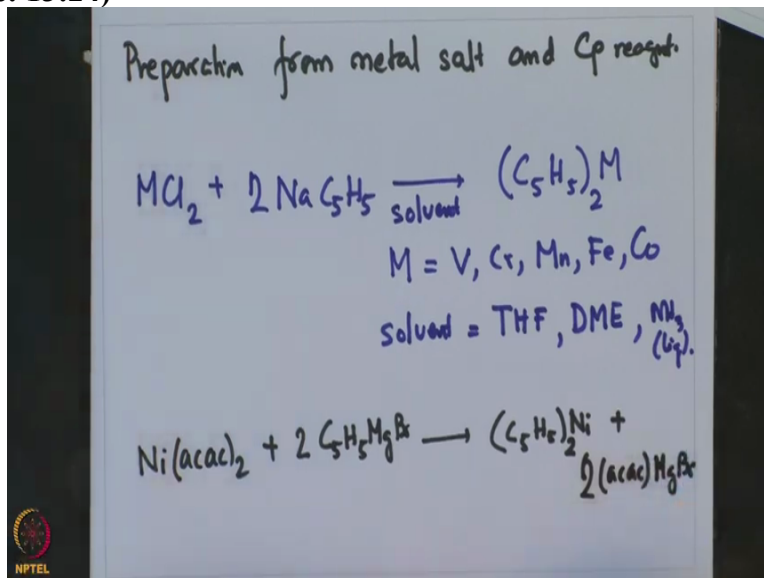 Preparation from metal salt and Cp reagent.
MCl₂ + 2 NaC₅H₅ → (C₅H₅)₂M
solvent
M = V, Cr, Mn, Fe, Co
solvent = THF, DME, NH₃
(liq).
Ni(acac)₂ + 2 C₅H₅MgBr → (C₅H₅)₂Ni +
2(acac)MgBr
NPTEL